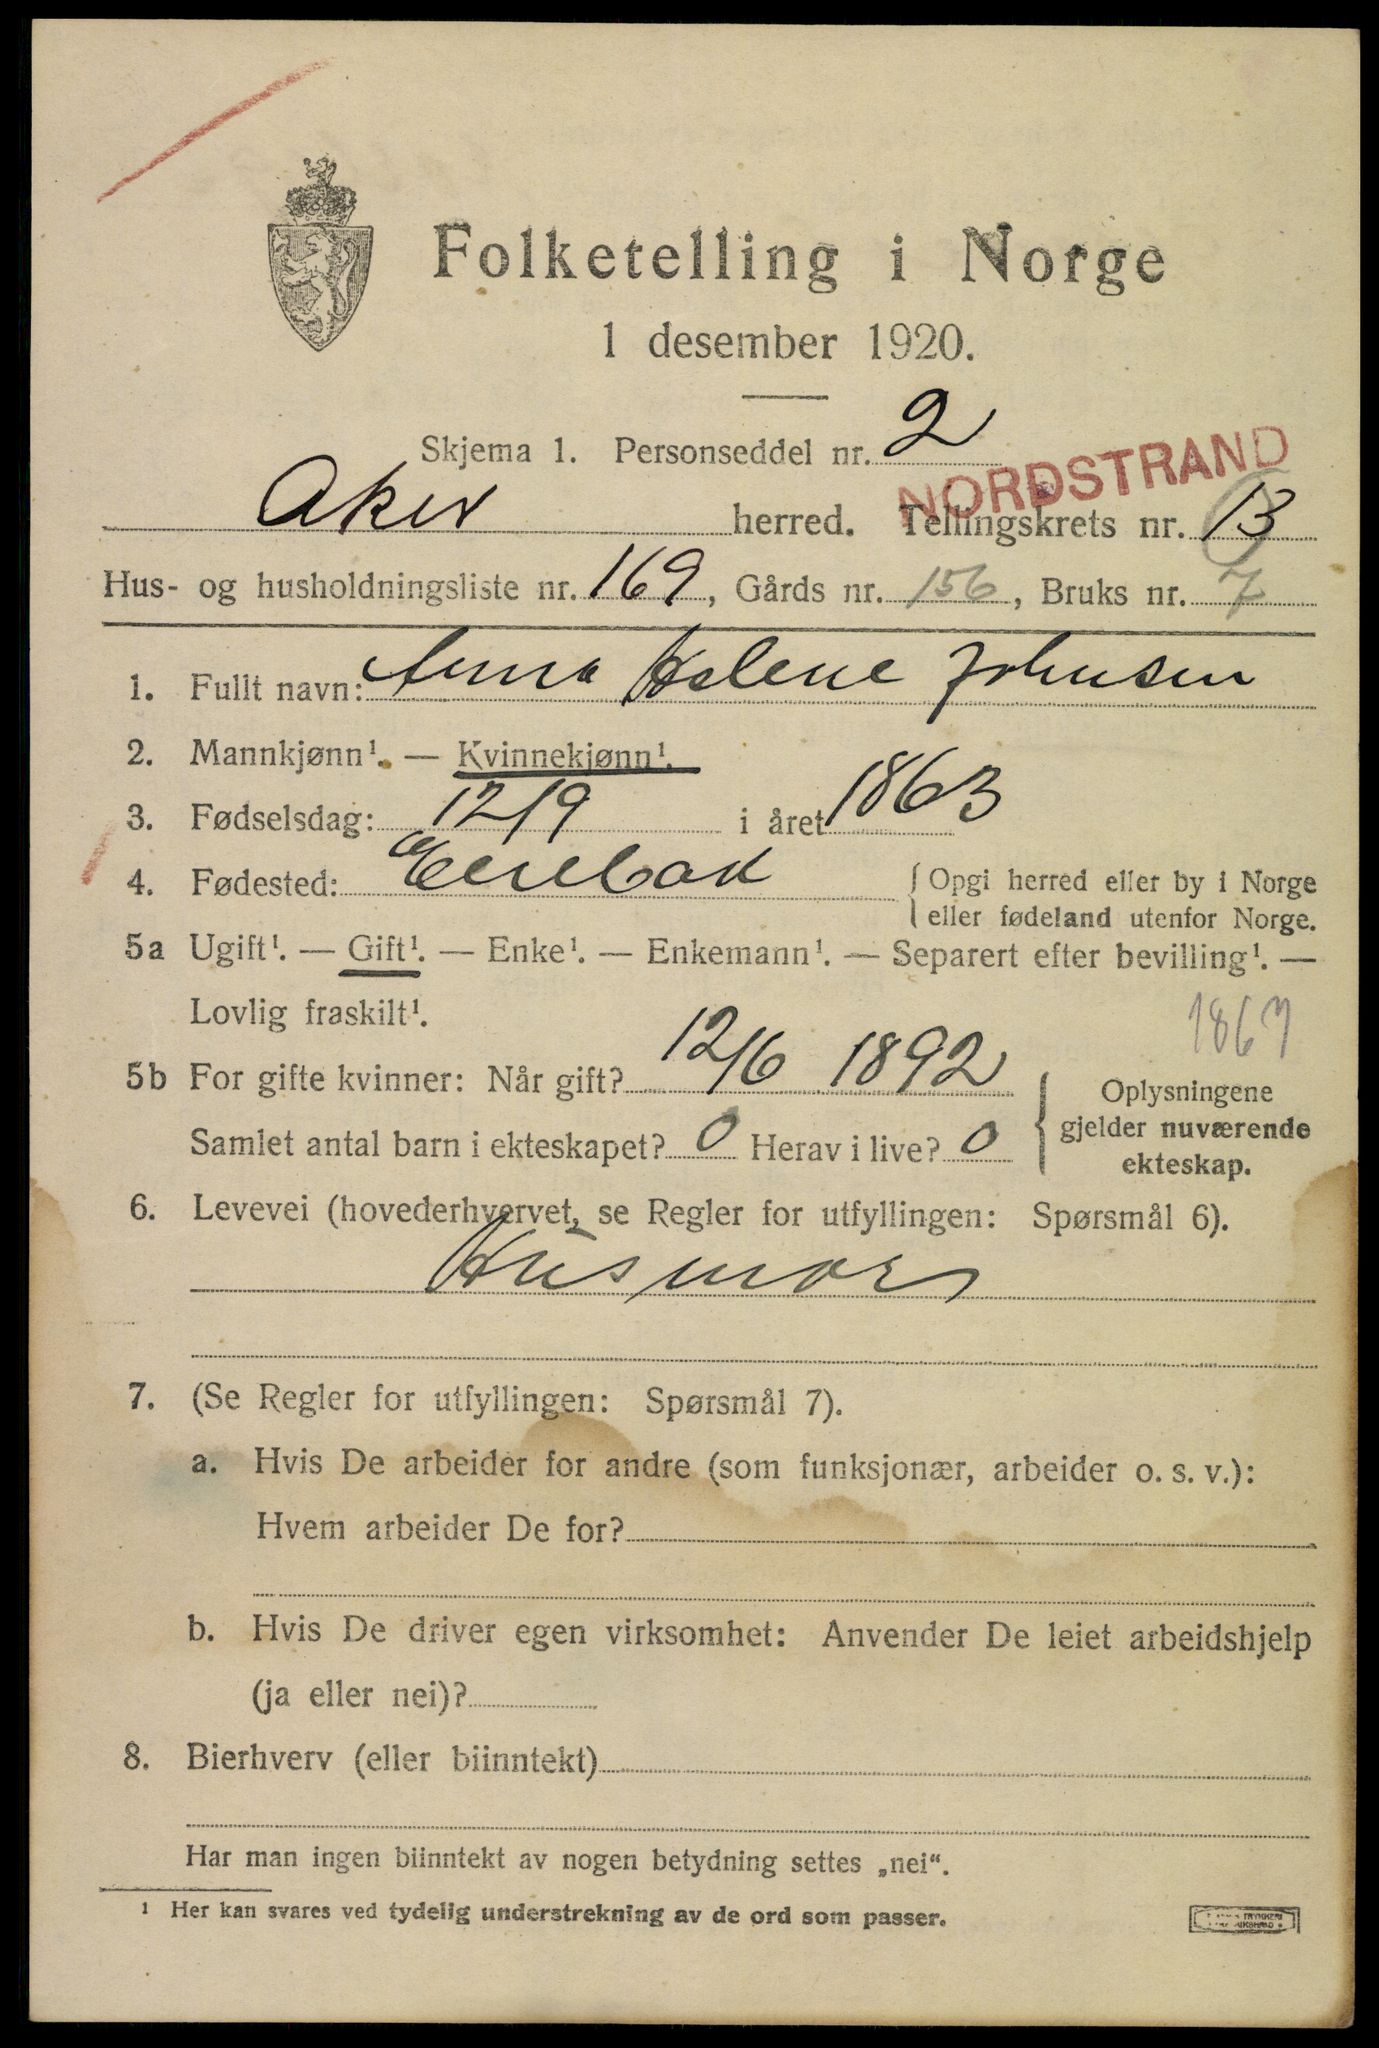 Folketelling i Norge
1 desember 1920.
Skjema 1. Personseddel nr. 2
NORDSTRAND
Aker herred. Tellingskrets nr. 13
Hus- og husholdningsliste nr. 169, Gårds nr. 156, Bruks nr. 7
1. Fullt navn: Anna Helene Johnsen
2. Mannkjønn¹. — Kvinnekjønn¹.
3. Fødselsdag: 12/9 i året 1863
4. Fødested: Enebak { Opgi herred eller by i Norge
eller fødeland utenfor Norge.
5a Ugift¹. — Gift¹. — Enke¹. — Enkemann¹. — Separert efter bevilling¹. —
Lovlig fraskilt¹.
1867
5b For gifte kvinner: Når gift? 12/6 1892
Samlet antal barn i ekteskapet? 0 Herav i live? 0
{ Oplysningene
gjelder nuværende
ekteskap.
6. Levevei (hovederhvervet, se Regler for utfyllingen: Spørsmål 6).
Husmor
7. (Se Regler for utfyllingen: Spørsmål 7).
a. Hvis De arbeider for andre (som funksjonær, arbeider o. s. v.):
Hvem arbeider De for?
b. Hvis De driver egen virksomhet: Anvender De leiet arbeidshjelp
(ja eller nei)?
8. Bierhverv (eller biinntekt)
Har man ingen biinntekt av nogen betydning settes „nei“.
¹ Her kan svares ved tydelig understrekning av de ord som passer.